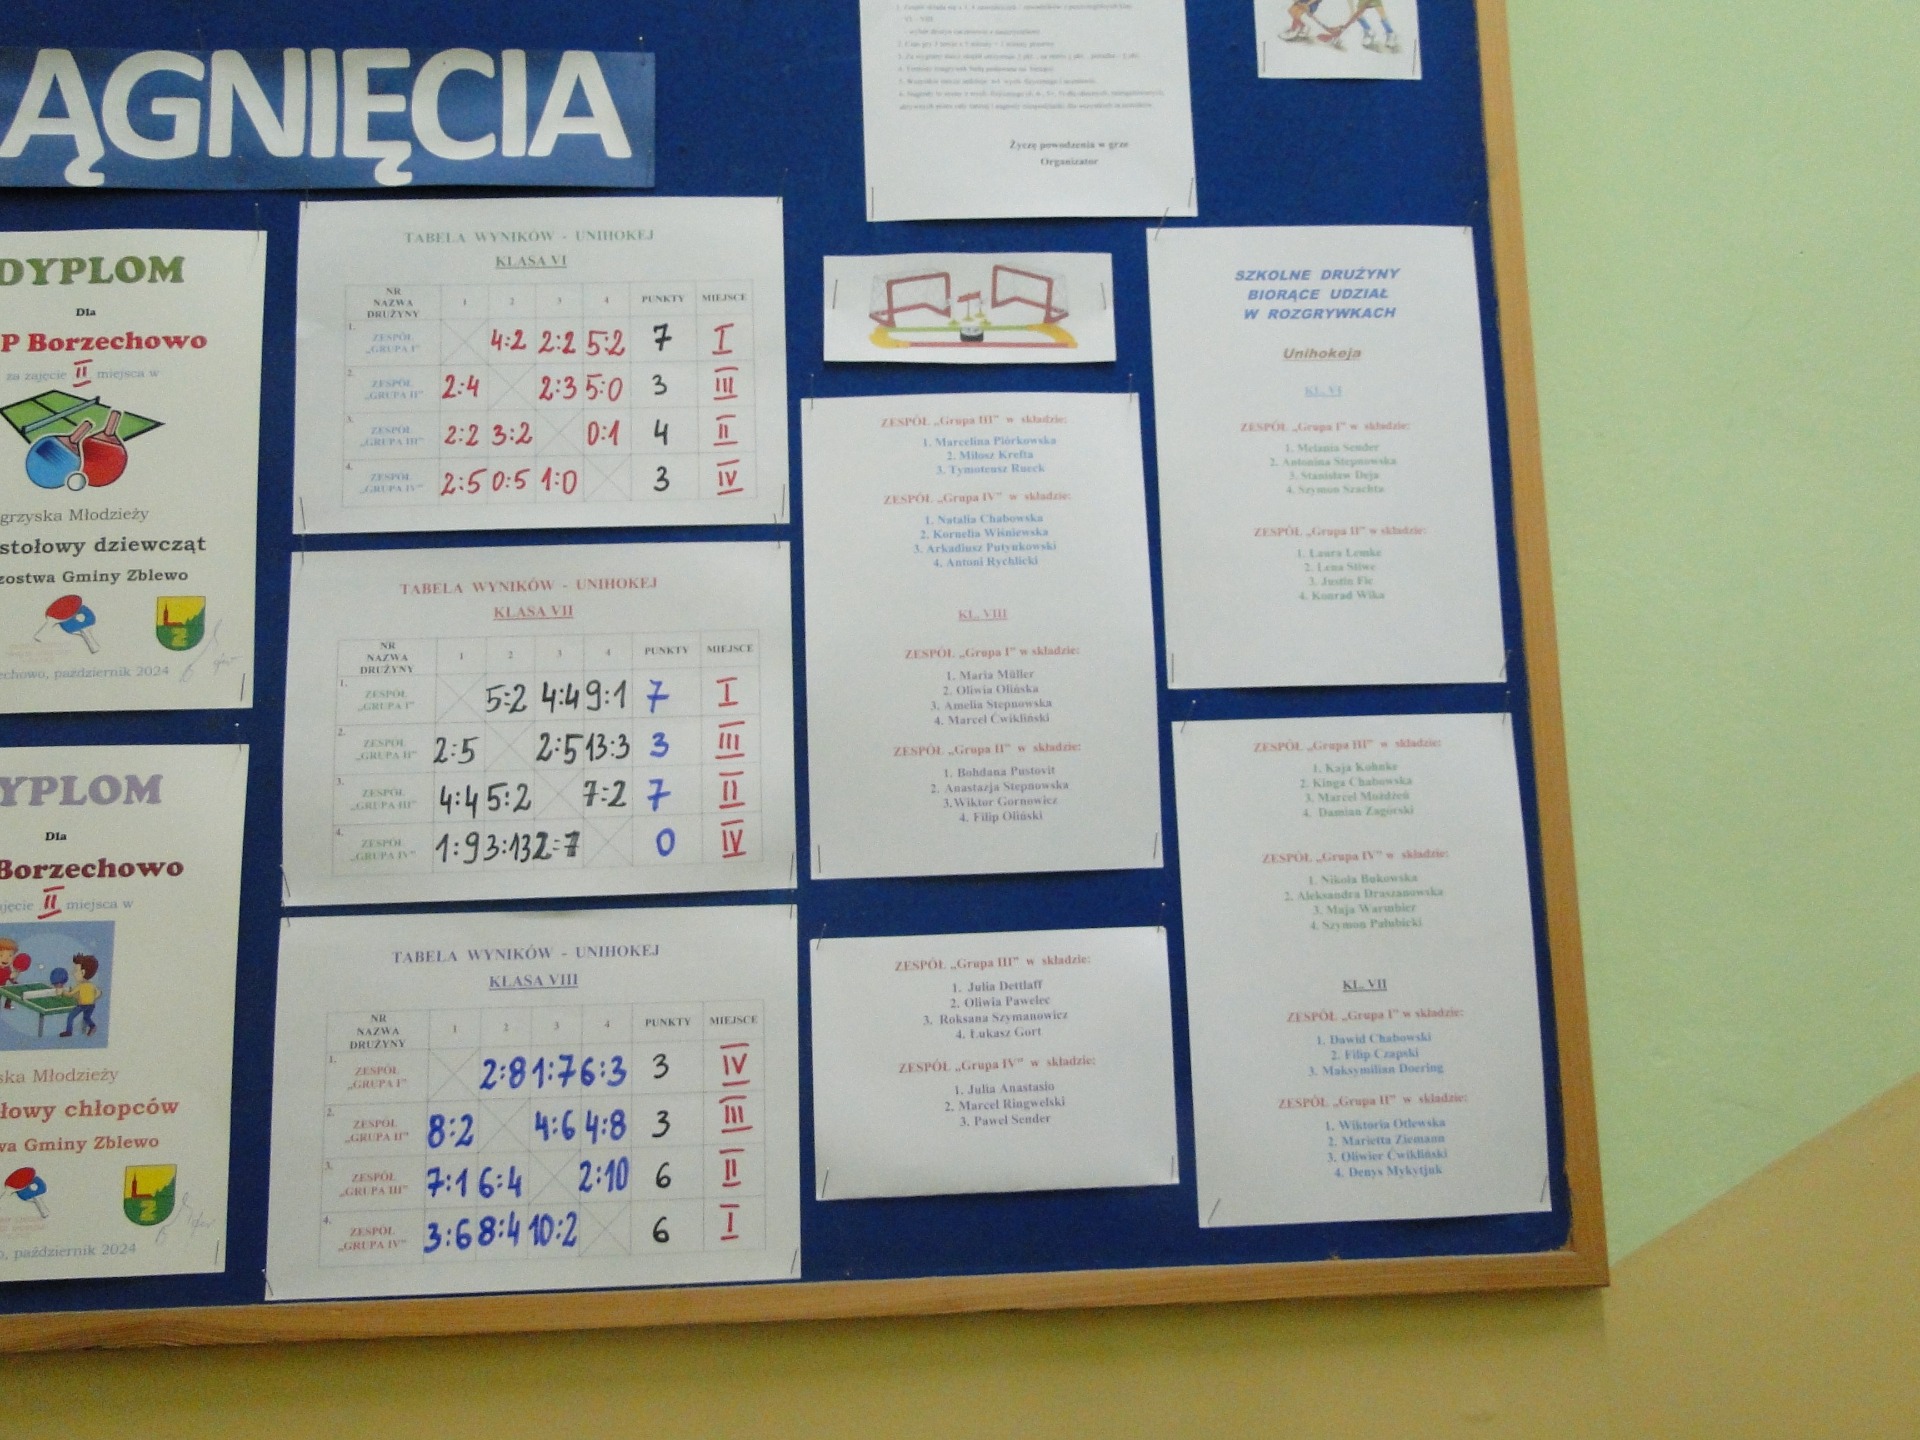 ĄGNIĘCIA
DYPLOM
Dla
P Borzechowo
za zajęcie II miejsca w
grzyska Młodzieży
stołowy dziewcząt
zostwa Gminy Zblewo
echowo, październik 2024
YPLOM
Dla
Borzechowo
jęcie II miejsca w
ska Młodzieży
łowy chłopców
wa Gminy Zblewo
o, październik 2024
TABELA WYNIKÓW - UNIHOKEJ
KLASA VI
NR NAZWA DRUŻYNY 1 2 3 4 PUNKTY MIEJSCE
1. ZESPÓŁ „GRUPA I" 4:2 2:2 5:2 7 I
2. ZESPÓŁ „GRUPA II" 2:4 2:3 5:0 3 III
3. ZESPÓŁ „GRUPA III" 2:2 3:2 0:1 4 II
4. ZESPÓŁ „GRUPA IV" 2:5 0:5 1:0 3 IV
TABELA WYNIKÓW - UNIHOKEJ
KLASA VII
NR NAZWA DRUŻYNY 1 2 3 4 PUNKTY MIEJSCE
1. ZESPÓŁ „GRUPA I" 5:2 4:4 9:1 7 I
2. ZESPÓŁ „GRUPA II" 2:5 2:5 13:3 3 III
3. ZESPÓŁ „GRUPA III" 4:4 5:2 7:2 7 II
4. ZESPÓŁ „GRUPA IV" 1:9 3:13 2:7 0 IV
TABELA WYNIKÓW - UNIHOKEJ
KLASA VIII
NR NAZWA DRUŻYNY 1 2 3 4 PUNKTY MIEJSCE
1. ZESPÓŁ „GRUPA I" 2:8 1:7 6:3 3 IV
2. ZESPÓŁ „GRUPA II" 8:2 4:6 4:8 3 III
3. ZESPÓŁ „GRUPA III" 7:1 6:4 2:10 6 II
4. ZESPÓŁ „GRUPA IV" 3:6 8:4 10:2 6 I
Życzę powodzenia w grze
Organizator
ZESPÓŁ „Grupa III" w składzie:
1. Marcelina Piórkowska
2. Miłosz Krefta
3. Tymoteusz Rueck
ZESPÓŁ „Grupa IV" w składzie:
1. Natalia Chabowska
2. Kornelia Wiśniewska
3. Arkadiusz Putynkowski
4. Antoni Rychlicki
KL. VIII
ZESPÓŁ „Grupa I" w składzie:
1. Maria Müller
2. Oliwia Olińska
3. Amelia Stepnowska
4. Marcel Ćwikliński
ZESPÓŁ „Grupa II" w składzie:
1. Bohdana Pustovit
2. Anastazja Stepnowska
3.Wiktor Gornowicz
4. Filip Oliński
ZESPÓŁ „Grupa III" w składzie:
1. Julia Dettlaff
2. Oliwia Pawelec
3. Roksana Szymanowicz
4. Łukasz Gort
ZESPÓŁ „Grupa IV" w składzie:
1. Julia Anastasio
2. Marcel Ringwelski
3. Paweł Sender
SZKOLNE DRUŻYNY
BIORĄCE UDZIAŁ
W ROZGRYWKACH
Unihokeja
KL. VI
ZESPÓŁ „Grupa I" w składzie:
1. Melania Sender
2. Antonina Stepnowska
3. Stanisław Deja
4. Szymon Szachta
ZESPÓŁ „Grupa II" w składzie:
1. Laura Lemke
2. Lena Sliwe
3. Justin Fic
4. Konrad Wika
ZESPÓŁ „Grupa III" w składzie:
1. Kaja Kohnke
2. Kinga Chabowska
3. Marcel Możdżeń
4. Damian Zagórski
ZESPÓŁ „Grupa IV" w składzie:
1. Nikola Bukowska
2. Aleksandra Draszanowska
3. Maja Warmbier
4. Szymon Pałubicki
KL. VII
ZESPÓŁ „Grupa I" w składzie:
1. Dawid Chabowski
2. Filip Czapski
3. Maksymilian Doering
ZESPÓŁ „Grupa II" w składzie:
1. Wiktoria Otlewska
2. Marietta Ziemann
3. Oliwier Ćwikliński
4. Denys Mykytjuk